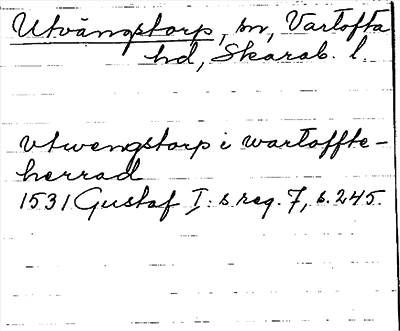 Utvängstorp, sn, Vartofta
hd, Skarab. l.
vtwengstorp i wartoffte-
herrad
1531 Gustaf I:s reg. 7, s. 245.